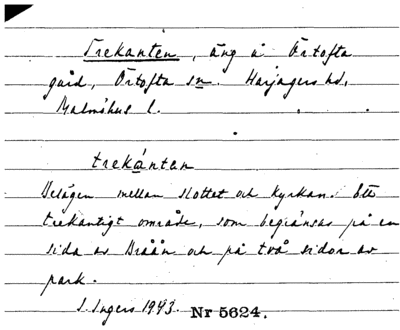 Trekanten, äng å Örtofta
gård, Örtofta sn. Harjagers hd,
Malmöhus l.
trekánten
Belägen mellan slottet och kyrkan. Ett
trekantigt område, som begränsas på en
sida av Bråån och på två sidor av
park.
S. Ingers 1943. Nr 5624.